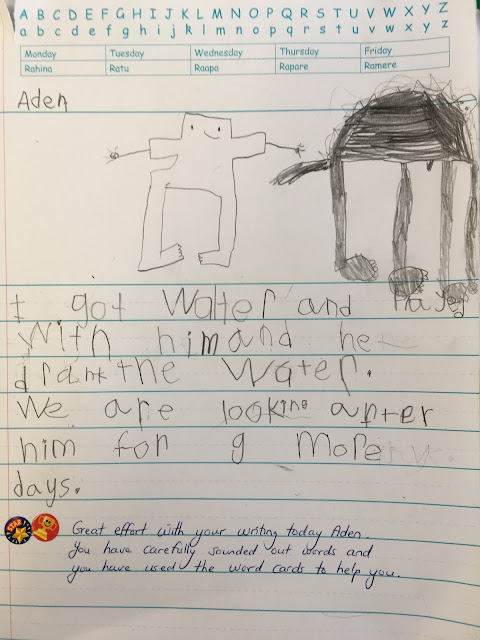 A B C D E F G H I J K L M N O P Q R S T U V W X Y Z
a b c d e f g h i j k l m n o p q r s t u v w x y z
Monday Tuesday Wednesday Thursday Friday
Rahina Ratu Raapa Rapare Ramere
Aden
I got Water and
With him and he
drank the Water.
We are looking after
him for 9 More
days.
STAR
Great effort with your writing today Aden.
You have carefully sounded out words and
you have used the word cards to help you.